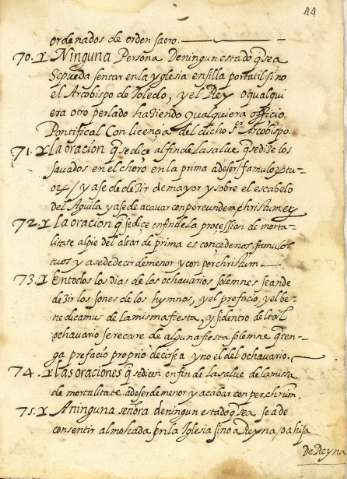 44
ordenados de orden sacro.
70. Ninguna Persona De ningun estado q sea
se pueda sentar en la yglesia en silla portatil sino
el Arcobispo de Toledo, y el Rey o qualqui
era otro perlado haciendo qualquiera officio
Pontifical Con licencia del dicho Sr Arcobispo.
71. La oracion q se dice al fin de la salve q se dice los
savados en el choro en la prima a de ser famulos tu
os y a se de decir de mayor y sobre el escabelo
del Aguila y a se de acavar con per eundem christum
72. La oracion q se dice en fin de la profession de morta
litate al pie del altar de prima es concede nos famulos
tuos y a se de decir de menor y con per christum
73. En todos los dias de los ochavarios solemnes se an de
decir los sones de los hymnos, y el prefacio, y el be
nedicamus de la misma fiesta, y si dentro del tal
ochavario se recare de alguna fiesta solemne q ten
ga prefacio proprio decirse a y no el del ochavario.
74. Las oraciones q se dicen en fin de la salve de la missa
de mortalitate a de ser de menor y acavar con per christum.
75. A ninguna señora de ningun estado q sea se a de
consentir almohada en la Iglesia sino a Reyna, o a hija
de Reyna